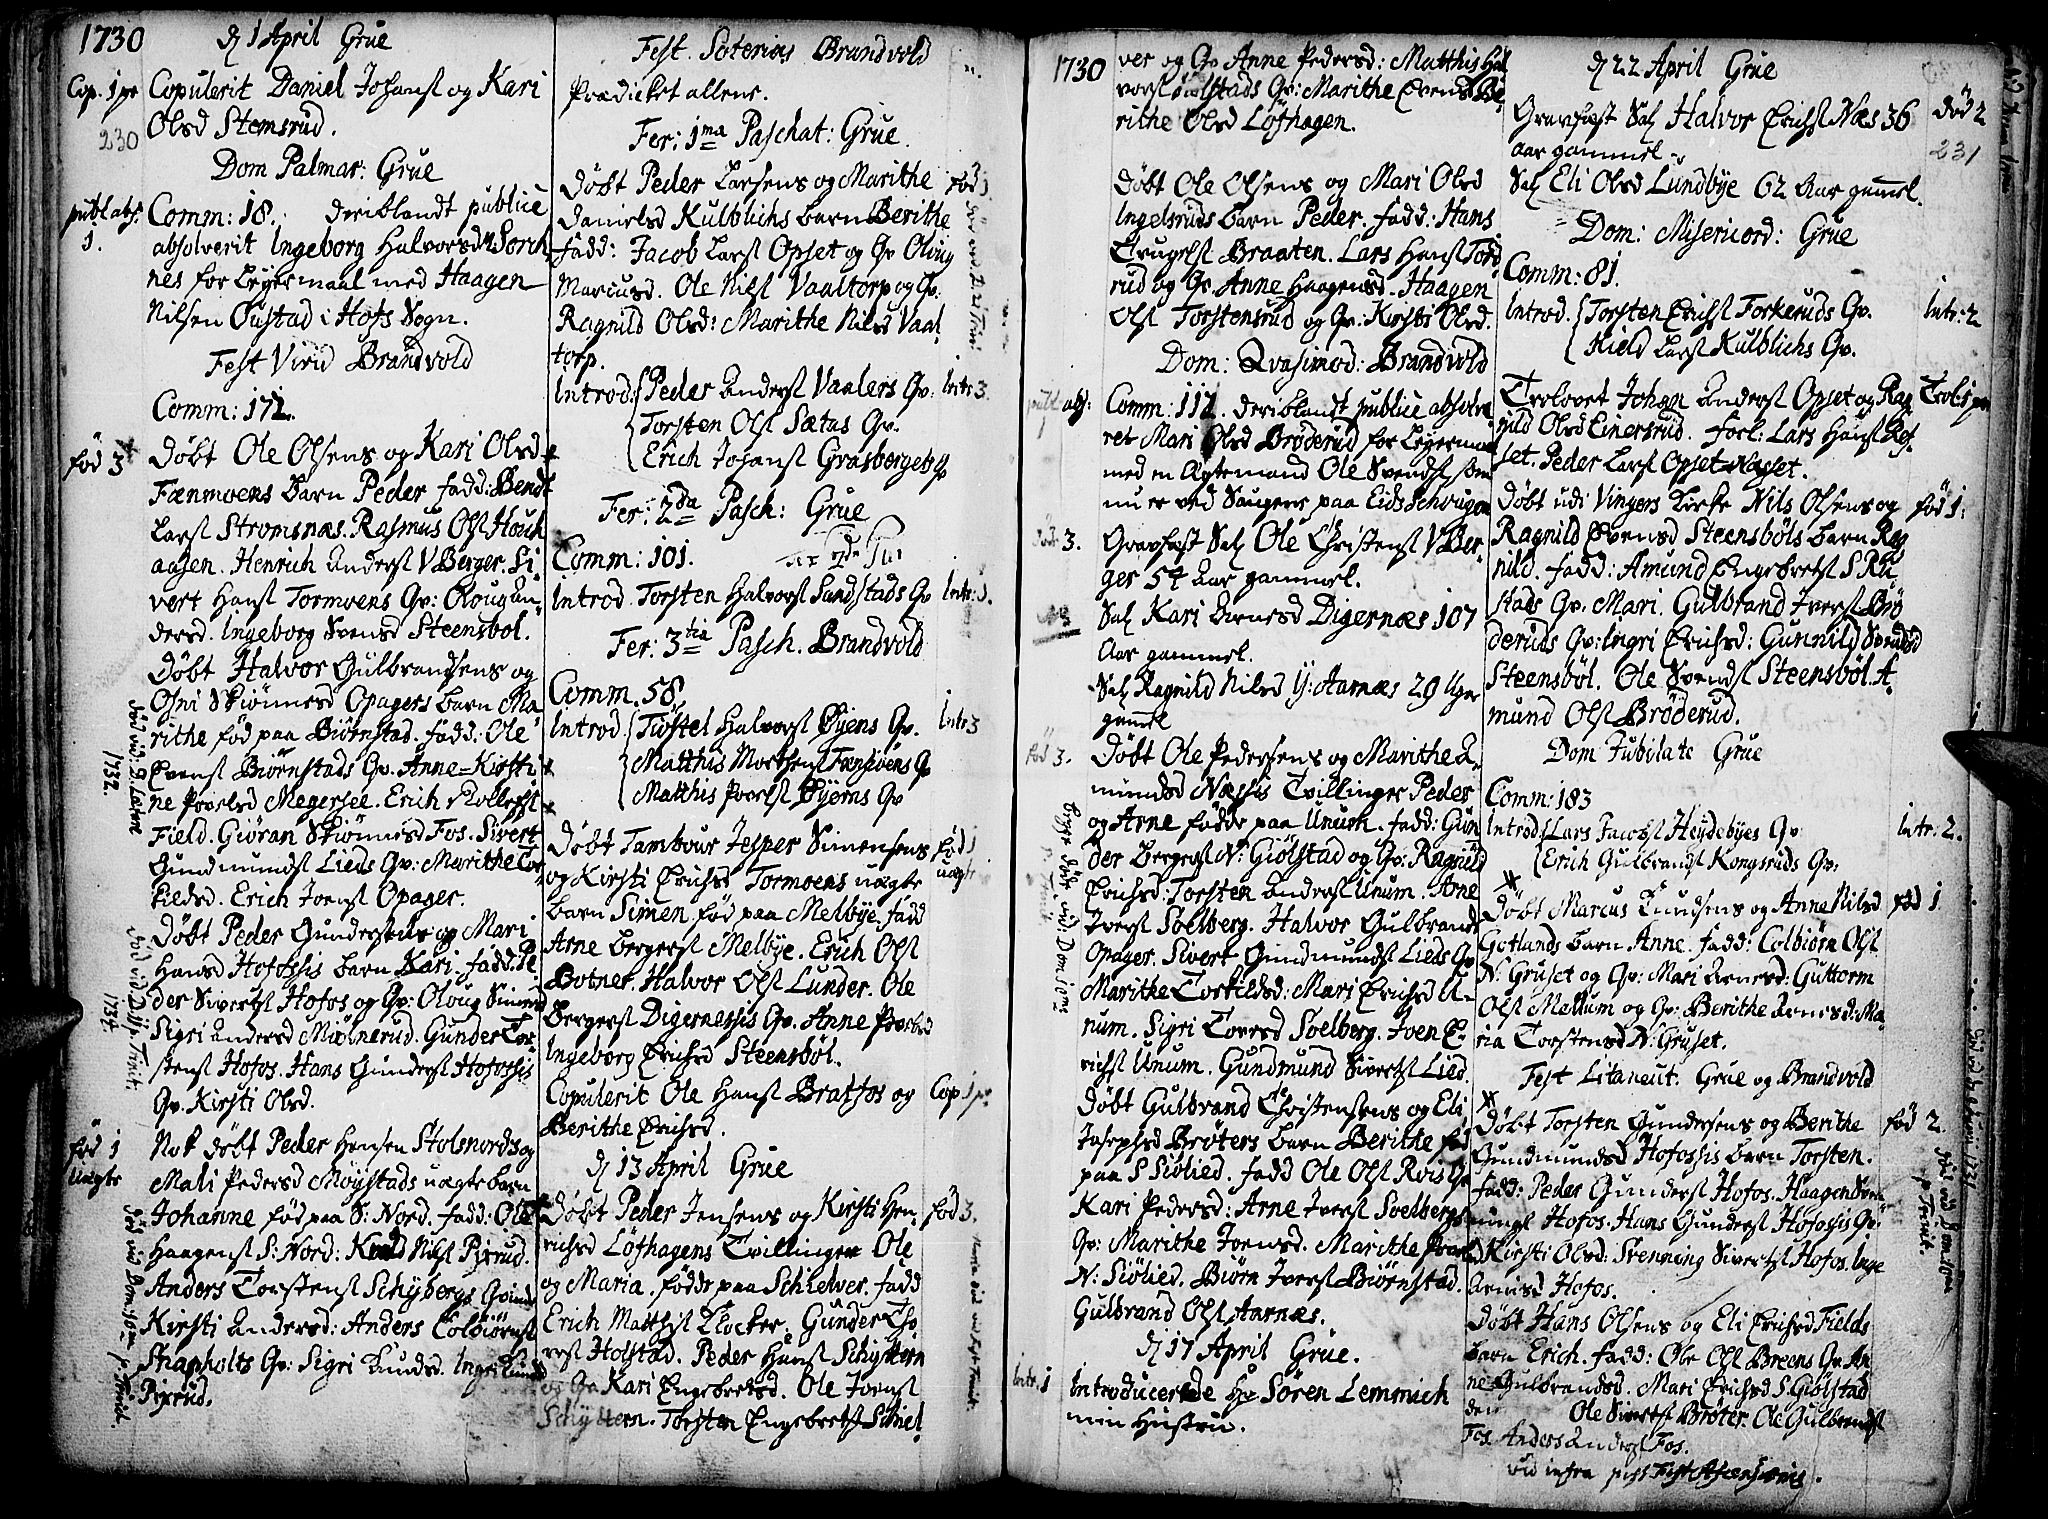 1730
d 1 April Grue
Cop. 1 pr
Copulerit Daniel Johans og Kari
Olsd Stemsrud.
230
Dom Palmar: Grue
publ abs: 1.
Comm: 18. deriblandt publice
absolverit Ingeborg Halvorsd Sorch
nes for Leyermaal med Haagen
Nilsen Öustad i Hofs Sogn.
Fest Virid Brandvold
Comm: 172.
fód 3
Döbt Ole Olsens og Kari Olsd
Fænmoens barn Peder fadd: Bendt
Lars Stromsnæs. Rasmus Ols Houk
aasen. Henrich Anders V Berger. Si
vert Hans Tormoens Qv: Oloug An
dersd. Ingeborg Svensd Steensbol.
Döbt Halvor Gulbrandsens og
Osni Skiönnesd Opagers barn Ma
rithe fød paa Biørnstad. fadd: Ole
Evens Biørnstads Qv. Anne-Kirsti
ne Povelsd Megersee. Erich Rollefs
Field. Giöran Skiönnesd Fos. Sivert
Gundmunds Lieds Qv: Marithe Tor
kieldsd. Erich Joens Opager.
Döbt Peder Gundersens og Mari
Hansd Hofossis barn Kari. fadd: Pe
der Siverts Hofos og Qv: Oloug Simensd
Sigri Andersd Miölnerud. Gunder Tor
stens Hofos. Hans Gunders Hofossis
Qv. Kirsti Olsd.
fód 1 Uægte
Nok döbt Peder Hansen Stolsnords og
Mali Pedersd Möystads uægte barn
Johanne fød paa S: Nord. fadd: Ole
Haagens S: Nord: Nils Pixrud.
Anders Torstens Schybergs Qvinde
Kirsti Andersd: Anders Colbiørns
Skapholts Qv: Sigri Knudsd. Ingri
Pixrud.
Fest. Soterios Brandvold
Prædicket allene.
Fer: 1ma Paschat: Grue.
fód 1
Döbt Peder Larsens og Marithe
Danielsd Kulblichs barn Berithe
fadd: Jacob Lars Opset og Qv Oloug
Marcusd. Ole Nils Vaaltorp og Qv:
Ragnild Olsd: Marithe Nilsd Vaal
torp.
Introd: Peder Anders Vaalers Qv: Intr: 3.
Torsten Ols Sætas Qv.
Erich Johans Grasbergets Qv
Fer: 2da Pasch: Grue
Comm: 101.
Introd. Torsten Halvors Sandstads Qv Intr: 1.
Fer: 3tia Pasch. Brandvold
Comm. 58.
Introd Tostel Halvors Öyens Qv. Intr 3
Matthis Morthens Fænsöens Qv
Matthis Povels Öyerns Qv
Döbt Tambour Jesper Simensens fód 1
og Kirsti Erichsd Tormoens uægte uægt
barn Simen. fød paa Melbÿe. fadd
Arne Bergers Melbÿe. Erich Ols
Botner. Halvor Ols Lunder. Ole
Bergers Digernessis Qv. Anne Povelsd
Ingeborg Erichsd Steensböl.
Copulerit Ole Hans Bratfos og Cop 1 pr
Berithe Erichsd.
d 13 April Grue
Döbt Peder Jensens og Kirsti Hen fód 3.
richsd Löfhagens Tvillinger Ole
og Maria. fødde paa Schielver. fadd
Erich Matthis Klocker. Gunder Tho
res Holstad. Peder Hans Schyttern
og Qv Kari Engebretsd. Ole Joens
Schyttern. Torsten Engebrets Schiel
1730
ver og Qv Anne Pedersd: Matthis Hal
vors Qv: Marithe Evensd Be
rithe Olsd Löfhagen.
Döbt Ole Olsens og Mari Olsd
Ingelsruds barn Peder. fadd: Hans
Trugels Braaten. Lars Hans Tord
rud og Qv. Anne Haagensd. Haagen
Ols Torstensrud og Qv: Kirsti Olsd.
Dom: Qvasimod: Brandvold
publ abs: 1
Comm: 112. deriblandt publice absolve
ret Mari Olsd Bröderud for Leyermaal
med en Ægtemand Ole Svends som
nu er ved Saugene paa Eidsschougen
Död 3.
Gravfæst Sal Ole Christens V Ber
ger 54 Aar gammel.
Sal Kari Arnesd Digernæs 107
Aar gammel.
Sal Ragnild Nilsd Y: Aarnæs 29 Uger
gamel
fód 3.
Döbt Ole Pedersens og Marithe A
mundsd Næssis Tvillinger Peder
og Arne fødde paa Unum. fadd: Gun
der Bergers N: Giölstad og Qv: Ragnild
Erichsd: Torsten Anders Unum. Arne
Ivers Soelberg. Halvor Gulbrands
Opager. Sivert Gundmunds Lieds Qv
Marithe Torkildsd: Mari Erichsd U
num. Sigri Toresd Soelberg. Joen E
richs Unum. Gundmund Siverts Lied.
Döbt Gulbrand Christensens og Eli
Josephsd Bröters barn Berithe fød
paa S Siölied. fadd Ole Ols Rvis Qv
Kari Pedersd: Arne Ivers Soelbergs
Qv: Marithe Joensd. Marithe
N: Siölied. Biørn Ivers Biørnstad.
Gulbrand Ols Aarnæs.
d 17 April Grue.
Intr: 1
Introducerede Hr Sören Lemmich
min Hustru.
d 22 April Grue
Gravfæst Sal Halvor Erichs Næs 36 död 2
aar gammel. 231
Sal Eli Olsd Lundbÿe 62 Aar gamel.
Dom: Misericord: Grue
Comm: 81.
Introd. Torsten Erichs Torkeruds Qv. Intr: 2
Kield Lars Kulblichs Qv.
Trolovet Johan Anders Opset og Rag Trol: 1 pr
nild Olsd Einersrud. forl: Lars Hans Ref
set. Peder Lars Opset Næset.
Döbt udi Vingers Kirke Nils Olsens og fód 1:
Ragnild Evensd Steensböls barn Rag
nild. fadd: Amund Engebrets S Ru
stads Qv. Mari. Gulbrand Ivers Brö
deruds Qv: Ingri Erichsd: Gunnild Svendsd
Steensböl. Ole Svends Steensböl. A
mund Ols Bröderud.
Dom Jubilate Grue
Comm: 183
Introd Lars Jacobs Heydebÿes Qv: Intr: 2.
Erich Gulbrands Kongsruds Qv:
Döbt Marcus Knudsens og Anne Nilsd fód 1
Gotlands barn Anne. fadd: Colbiørn Ols
N: Gruset og Qv: Mari Arnesd: Guttorm
Ols Mellum og Qv: Berithe Arnesd: Ma
ria Torstensd N: Gruset.
Fest Litaneut. Grue og Brandvold
Döbt Torsten Gundersens og Berithe fód 2.
Gundmundsd Hofossis barn Torsten.
fadd: Peder Gunders Hofos. Haagen Sven
nungs Hofos. Hans Gunders Hofossis Qv:
Kirsti Olsd: Svenning Siverts Hofos. Inge
Arnisd Hofos.
Döbt Hans Olsens og Eli Erichsd Fields
barn Erich. fadd: Ole Ols Breens Qv. An
ne Gulbrandsd. Mari Erichsd S Giölstad
den Ole Siverts Bröter. Ole Gulbrands
Fos. Anders Anders Fos.
vid infra post Fest Ascensionis.